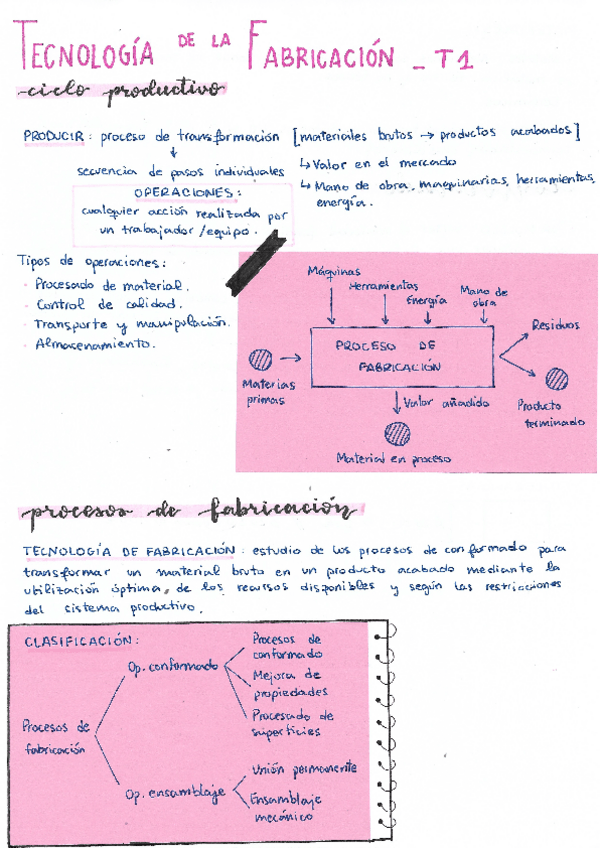 TECNOLOGÍA DE LA FABRICACIÓN - T1
ciclo productivo
PRODUCIR: proceso de transformación [materiales brutos → productos acabados]
↓
secuencia de pasos individuales
↳ Valor en el mercado
↳ Mano de obra, maquinarias, herramientas,
energía.
OPERACIONES:
cualquier acción realizada por
un trabajador/equipo.
Tipos de operaciones:
- Procesado de material.
- Control de calidad.
- Transporte y manipulación.
- Almacenamiento.
Máquinas
Herramientas
Energía
Mano de
obra
PROCESO DE
FABRICACIÓN
Materias
primas
Residuos
Producto
terminado
Valor añadido
Material en proceso
procesos de fabricación
TECNOLOGÍA DE FABRICACIÓN: estudio de los procesos de conformado para
transformar un material bruto en un producto acabado mediante la
utilización óptima de los recursos disponibles y según las restricciones
del sistema productivo.
CLASIFICACIÓN:
Procesos de
fabricación
Op. conformado
Procesos de
conformado
Mejora de
propiedades
Procesado de
superficies
Op. ensamblaje
Unión permanente
Ensamblaje
mecánico